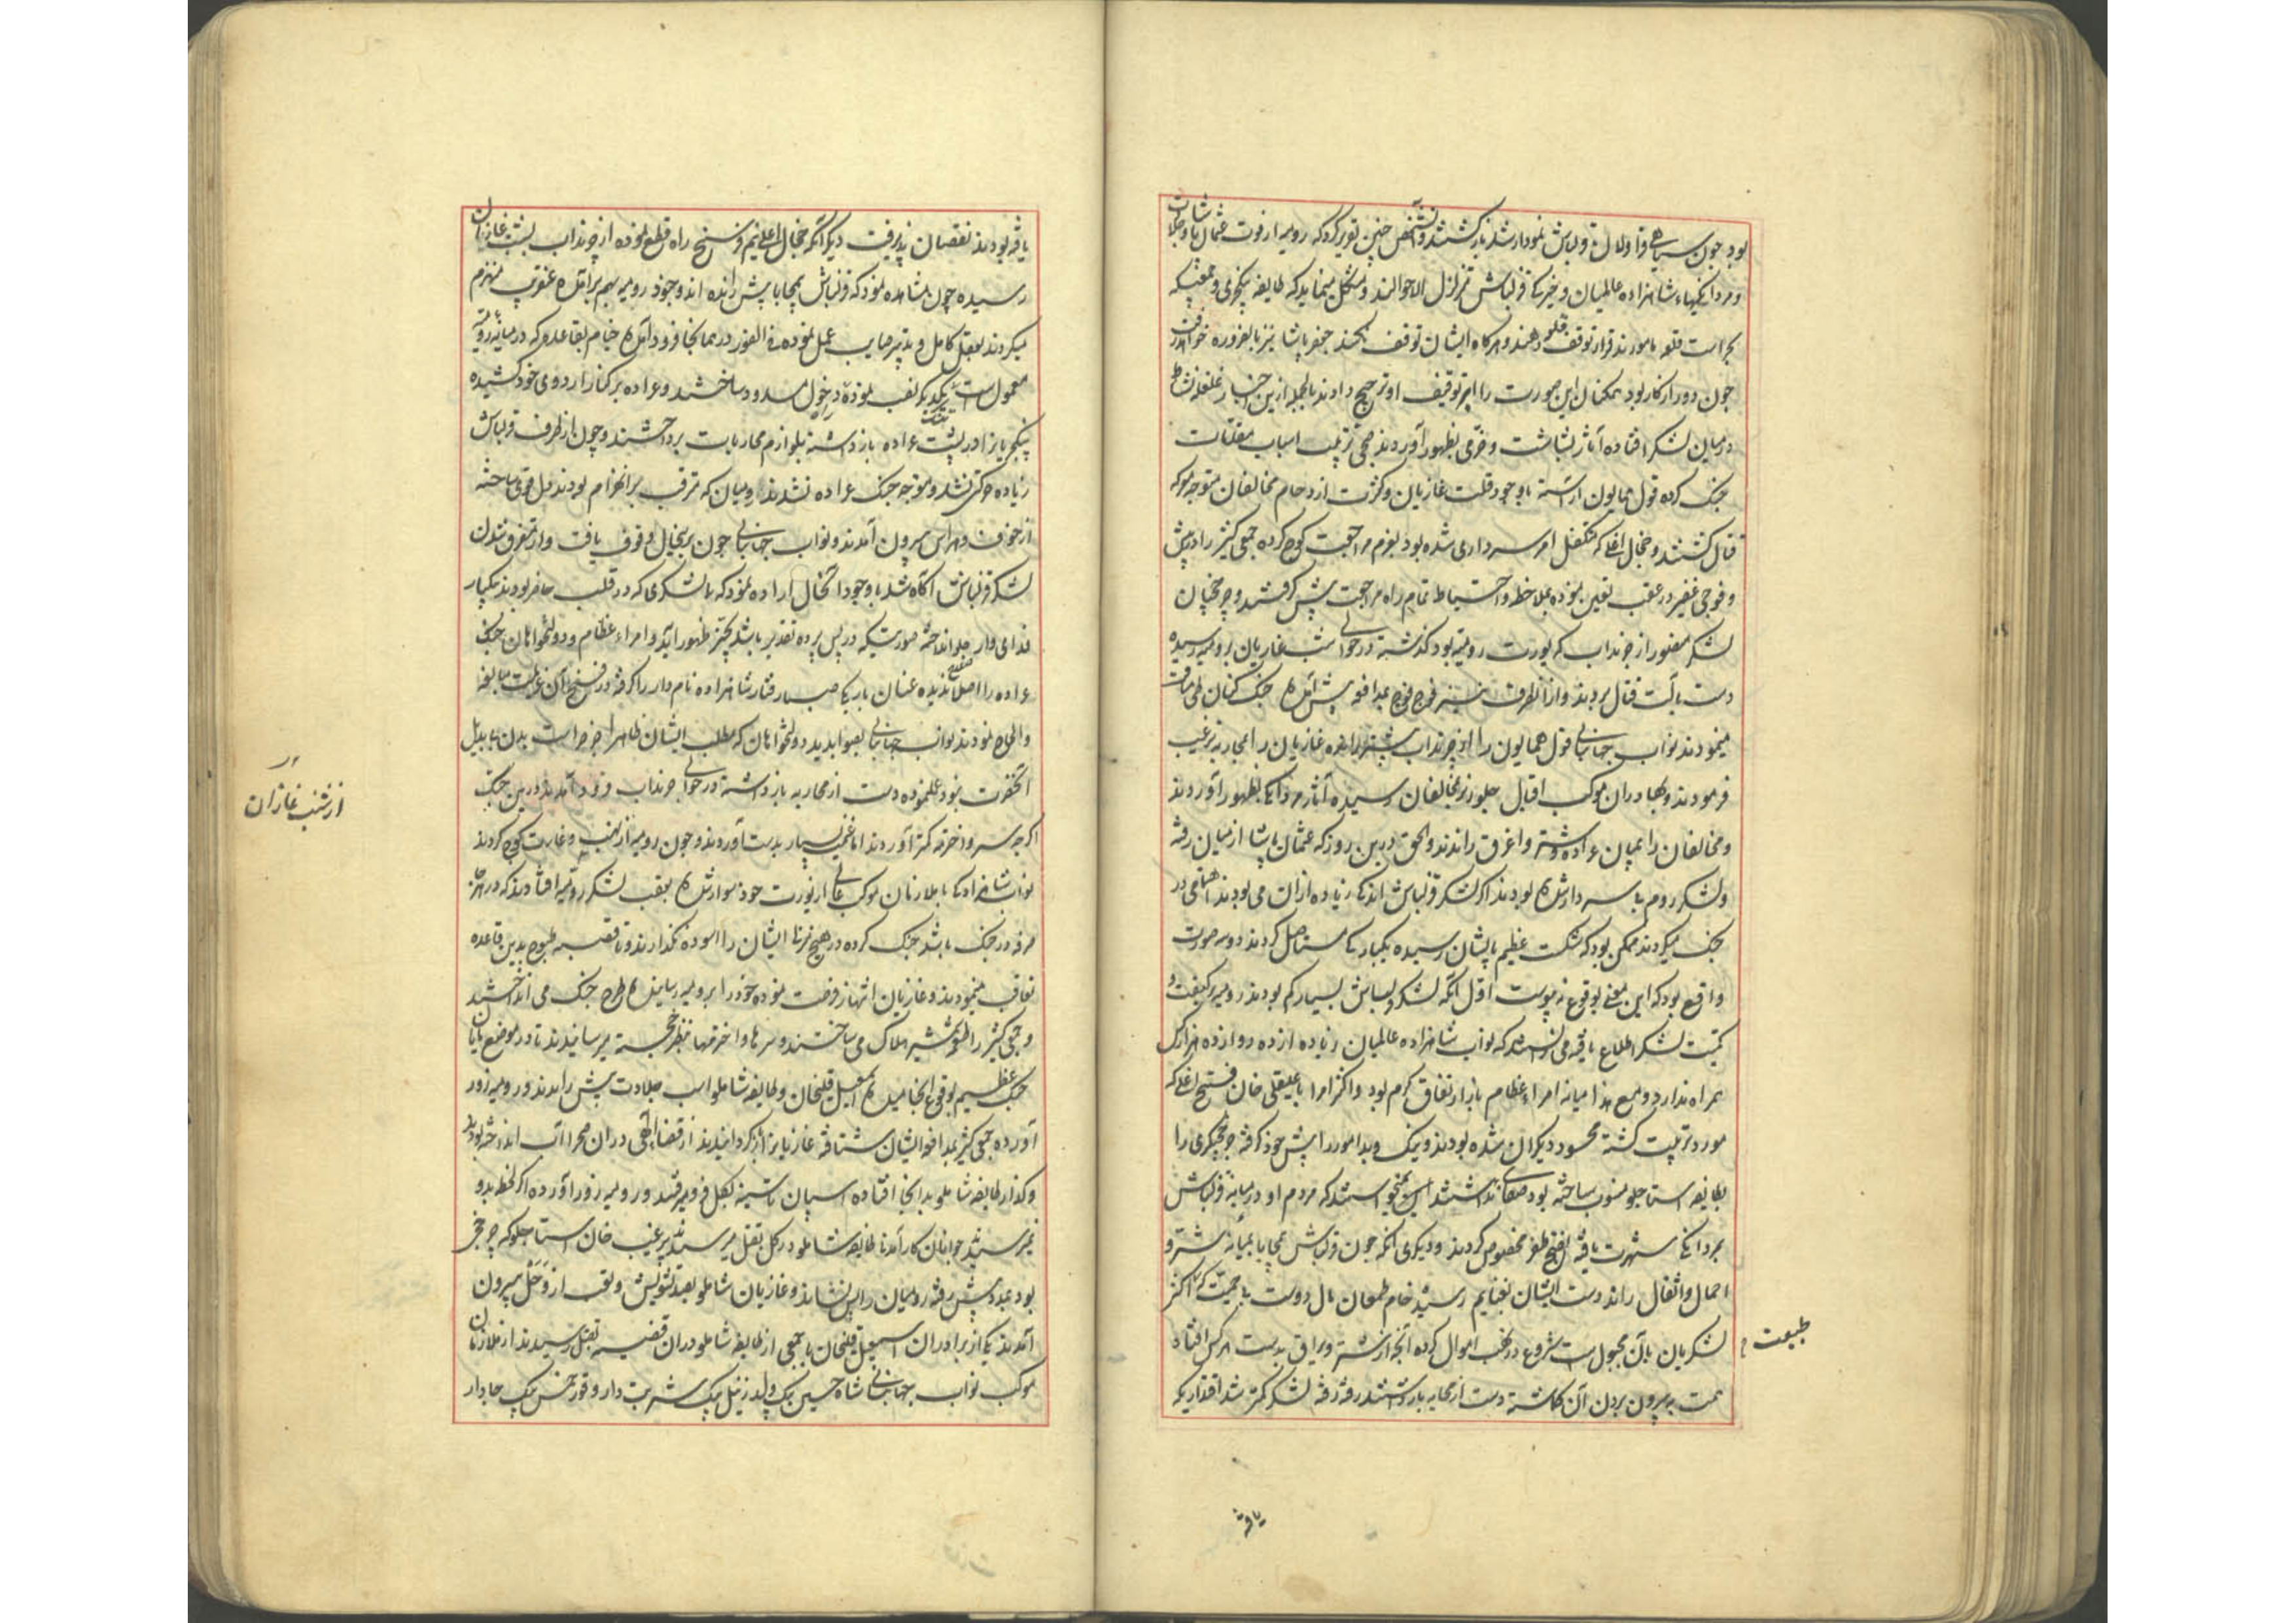 بود چون سیاهی قراولان قزلباش نمودار شد بازگشتند و آن شخص چنین تقریر کرد که رومیه از فوت عثمان پاشا و جلادت
و مردانگیهاء شاهزاده عالمیان و خیرگی قزلباش متزلزل الاحوالند و مشکل مینماید که طایفه ینکچری و جمعی که
بحراست قلعه مامورند قرار توقف قلعه دهند و هرگاه ایشان توقف نکنند جعفر پاشا نیز بالضروره خواهد رفت
چون دور از کار بود همکنان این صورت را بر توقیف او ترجیح دادند بالجمله ازین اخبار غلغله نشاط
در میان لشکر افتاده آثار بشاشت و خرمی بظهور آوردند صبحی ترتیب اسباب مقاتلت
جنگ کرده قول همایون آراسته با وجود قلت غازیان و کثرت ازدحام مخالفان متوجه معرکه
قتال گشتند و جغال اغلی که متکفل امر سرداری شده بود بعزم مراجعت کوچ کرده جمعی کثیر را در پیش
و فوجی غفیر در عقب تعین نموده بملاحظه و احتیاط تمام راه مراجعت پیش گرفتند و چرخچیان
لشکر منصور از چرنداب که یورت رومیه بود گذشته در حوالی شنب غازیان برومیه رسیده
دست بآلت قتال بردند و از آنطرف نیز فوج فوج بمدافعه پیش آمده جنگ کنان طی مسافت
مینمودند نواب جهانبانی قول همایون را از چرنداب پیشتر رانده غازیان را بمحاربه ترغیب
فرمودند و بهادران موکب اقبال جلوریز بمخالفان رسیده آثار مردانگی بظهور آوردند
و مخالفان را بمیان عراده و شتر و اغرق راندند و الحق درین روز که عثمان پاشا از میان رفته
و لشکر روم بی سردار شده بودند اگر لشکر قزلباش اندکی زیاده ازان می بودند و اهتمامی در
جنگ میکردند ممکن بود که شکست عظیم بایشان رسیده یکبارگی مستاصل گردند دو سه صورت
واقع بود که این معنی بوقوع نه پیوست اول آنکه لشکر قزلباش بسیار کم بودند رومیه بکیفیت و
کمیت لشکر اطلاع یافته می دانستند که نواب شاهزاده عالمیان زیاده از ده دوازده هزار کس
همراه ندارد و مع هذا میانه امراء عظام بازار نفاق گرم بود و اکثر امرا با علیقلی خان فتح اغلی که
مورد تربیت گشته محسود دیگران شده بودند و نیک و بد امور را پیش خود گرفته چرخچیگری را
بطایفه استاجلو منسوب ساخته بود صفائی نداشتند نمیخواستند که مردم او در میانه قزلباش
بمردانگی شهرت یافته این فتح و ظفر مخصوص گردند و دیگری آنکه چون قزلباش بمحابا بمیانه شتر و
احمال و اثقال راندند دست ایشان بغنایم رسید خام طمعان مال دوست یا جمعیت که اکثر
لشکریان بآن مجبول است شروع در نهب اموال کرده آنچه از شتر و یراق بدست هرکس افتاد
همت به بیرون بردن آن گماشته دست از محاربه بازداشتند رفته رفته لشکر کمتر شد اقتداریکه
طبیعت
یافته
یافته بودند نقصان پذیرفت دیگر آنکه جغال اغلی نیم فرسنخ راه قطع نموده از چرنداب بشنب غازان
رسیده چون مشاهده نمود که قزلباش بمحابا پیش رانده اند و جنود رومیه بهم برآمده عنقریب منهزم
میگردند بعقل کامل و تدبیر صایب عمل نموده فی الفور در همانجا فرود آمده خیام بقاعده که در میانه رومیه
معمول است بیکدیگر نصب نموده در دخول مسدود ساختند و عراده بر کنار اردوی خود کشیده
ینکچریان را در پشت عراده بازداشته بلوازم محاربات پرداختند و چون از طرف قزلباش
زیاده حرکتی نشد و متوجه جنگ عراده نشدند رومیان که مترقب بر انهزام بودند دل قوی ساخته
از خوف و هراس بیرون آمدند و نواب جهانبانی چون برینحال وقوف یافت و از متفرق شدن
لشکر قزلباش آگاه شد با وجود آنحال اراده نمود که با لشکری که در قلب حاضر بودند یکبار
فدائی وار جلو انداخته صورتی که در پس پرده تقدیر باشد بحیز ظهور آید و امراء عظام و دولتخواهان جنگ
عراده را اصلا صلاح ندیده عنان بارگی صبا رفتار شاهزاده نامدار را گرفته در فسخ آن عزیمت مبالغه
و الحاح نمودند نواب جهانبانی بصوابدید دولتخواهان که مطلب ایشان ظاهرا حراست بدن بی بدیل
آنحضرت بود عمل نموده دست از محاربه بازداشته در حوالی چرنداب فرود آمدند درین جنگ
اگرچه سر و اخترمه کمتر آوردند اما غنایم بسیار بدست آوردند و چون رومیه از شنب غازان کوچ کردند
نواب شاهزادگی با ملازمان موکب عالی از یورت خود سوار شده بعقب لشکر رومیه افتادند که در هرجا
صرفه در جنگ باشد جنگ کرده در هیچ منزل ایشان را آسوده نگذارند و تا قصبه طسوج بدین قاعده
تعاقب مینمودند و غازیان انتهاز فرصت نموده خود را برومیه رسانیده طرح جنگ می انداختند
و جمعی کثیر را طعمه شمشیر هلاک می ساختند و سرها و اخترمها بنظر خجسته میرسانیدند تا در موضع پایان
جنگ عظیم بوقوع انجامیده اسمعیل قلیخان و طایفه شاملو اسب جلادت پیش راندند و رومیه زور
آورده جمعی کثیر بمدافعه ایشان شتافته غازیان را بازگردانیدند از قضا الهی دران صحرا آب انداخته بودند
و گذار طایفه شاملو بدانجا افتاده اسپان تا سینه بگل فرو میرفتند و رومیه زور آورده اگر لحظه بدو
نمیرسیدند جوانان کارآمدنی طایفه شاملو در گل بقتل میرسیدند پیر غیب خان استاجلو که چرخچی
بود بمدد پیش رفته رومیان را پس نشاند و غازیان شاملو بصد تشویش و تعب از وحل بیرون
آمدند یکی از برادران اسمعیل قلیخان با جمعی از طایفه شاملو دران قضیه بقتل رسیدند از ملازمان
موکب نواب جهانبانی شاه حسین بیک ولد زینل بیک شربت دار و قورخمس بیک جابدار
از شنب غازان